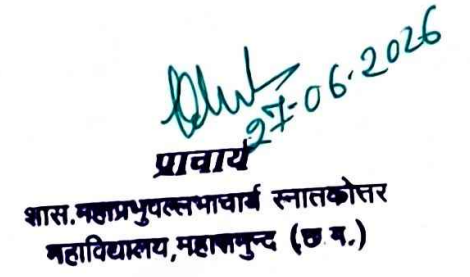 27-06-2026
प्राचार्य
शास.महाप्रभुवल्लभाचार्य स्नातकोत्तर
महाविद्यालय,महासमुन्द (छ.ग.)